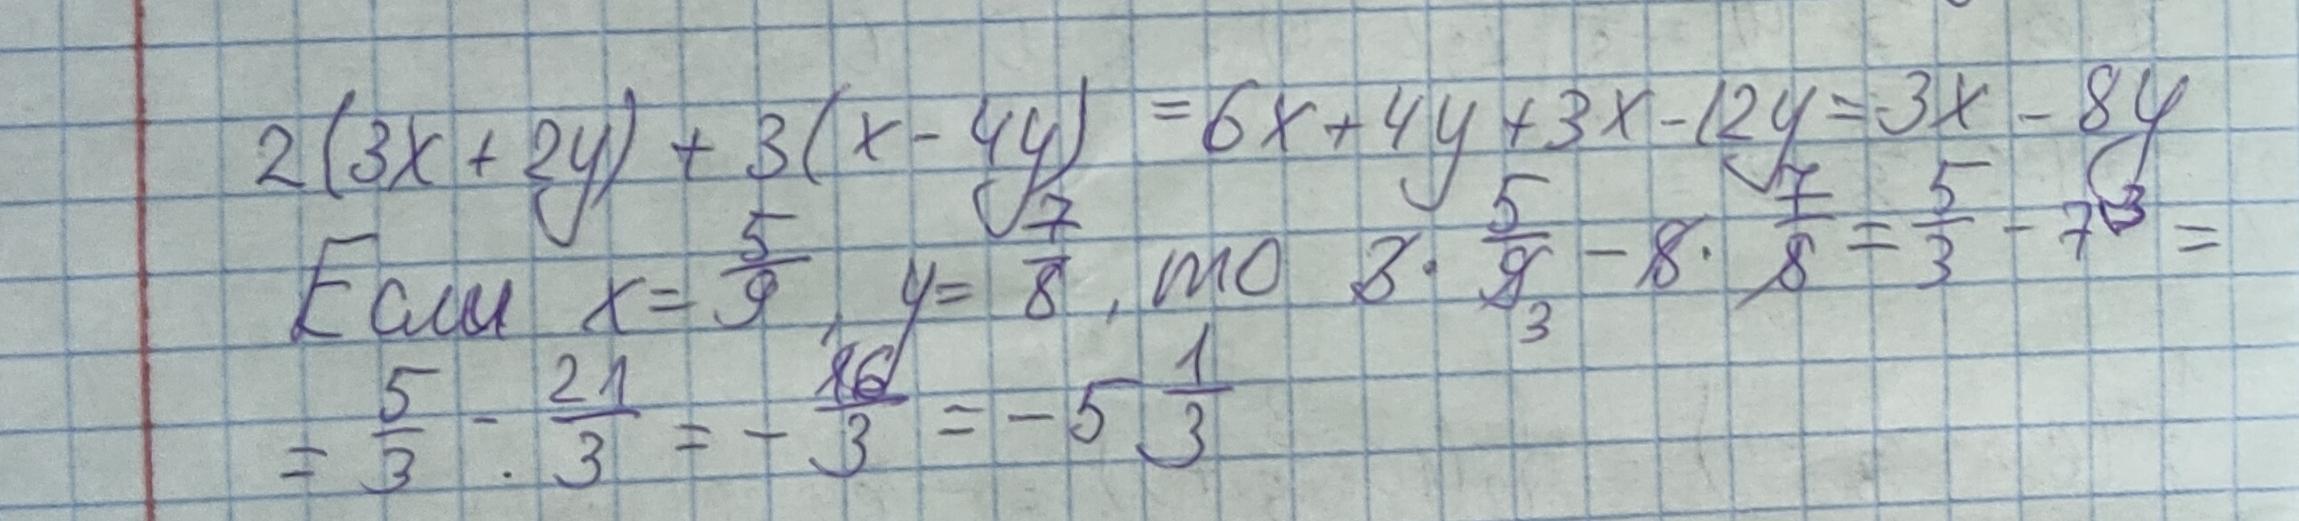 2(3x+2y)+3(x-4y)=6x+4y+3x-12y=3x-8y
Если x=5/9, y=7/8, то 3·5/9-8·7/8=5/3-7=
=5/3-21/3=-16/3=-5 1/3